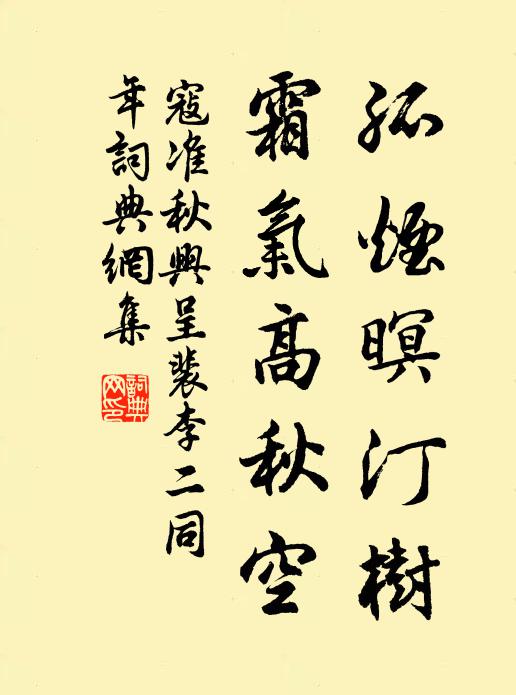 孤煙暝汀樹
霜氣高秋空
寇准秋興呈裴李二同
年詞典網集
詞典網印